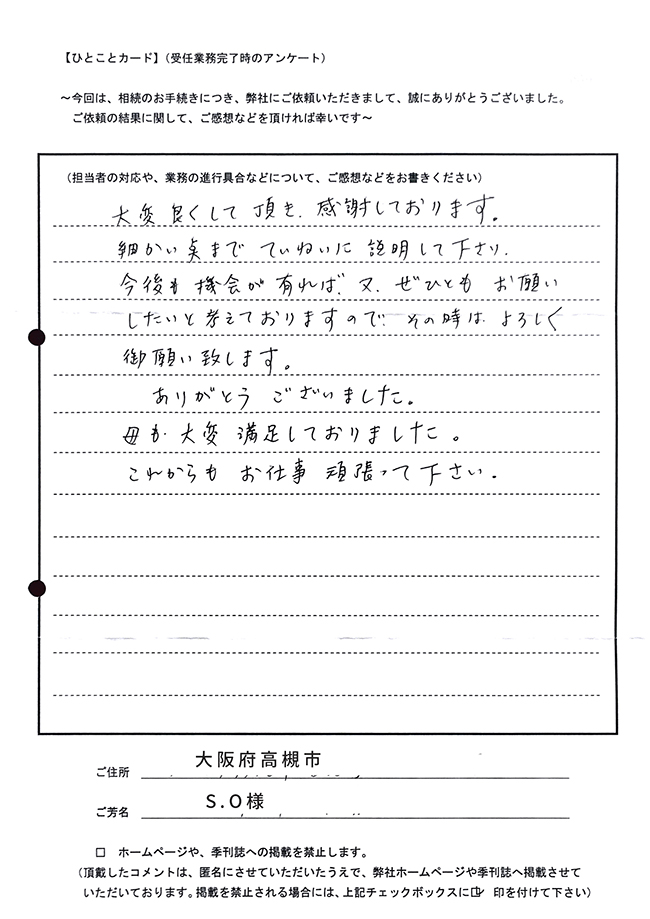 【ひとことカード】（受任業務完了時のアンケート）
～今回は、相続のお手続きにつき、弊社にご依頼いただきまして、誠にありがとうございました。
ご依頼の結果に関して、ご感想などを頂ければ幸いです～
（担当者の対応や、業務の進行具合などについて、ご感想などをお書きください）
大変良くして頂き、感謝しております。
細かい点まで ていねいに 説明して下さり、
今後も 機会が有れば、又、ぜひとも お願い
したいと考えておりますので、その時は よろしく
御願い致します。
ありがとう ございました。
母も 大変 満足しておりました。
これからも お仕事 頑張って下さい。
ご住所 大阪府高槻市
ご芳名 S.O様
□ ホームページや、季刊誌への掲載を禁止します。
（頂戴したコメントは、匿名にさせていただいたうえで、弊社ホームページや季刊誌へ掲載させて
いただいております。掲載を禁止される場合には、上記チェックボックスに☑ 印を付けて下さい）